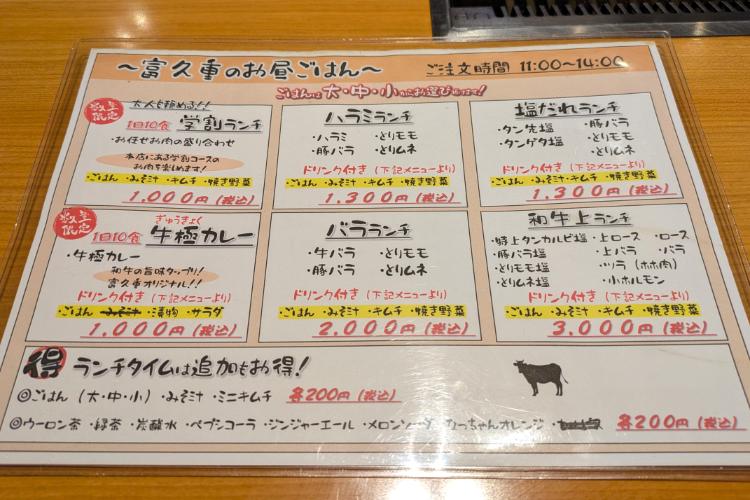 ～富久重のお昼ごはん～
ご注文時間 11:00～14:00
ごはんは大・中・小からお選び頂けます!
数量限定
大人も頼める!!
1日10食 学割ランチ
・お任せお肉の盛り合わせ
本店にある学割コースの
お肉を楽しめます!
・ごはん ・みそ汁 ・キムチ ・焼き野菜
1,000円(税込)
ハラミランチ
・ハラミ ・とりモモ
・豚バラ ・とりムネ
ドリンク付き(下記メニューより)
・ごはん ・みそ汁 ・キムチ ・焼き野菜
1,300円(税込)
塩だれランチ
・タン先塩 ・豚バラ
・タンゲタ塩 ・とりモモ
・とりムネ
ドリンク付き(下記メニューより)
・ごはん ・みそ汁 ・キムチ ・焼き野菜
1,300円(税込)
数量限定
ぎゅうきょく
1日10食 牛極カレー
・牛極カレー
和牛の旨味タップリ!
富久重オリジナル!!
ドリンク付き(下記メニューより)
・ごはん ・みそ汁 ・漬物 ・サラダ
1,000円(税込)
バラランチ
・牛バラ ・とりモモ
・豚バラ ・とりムネ
ドリンク付き(下記メニューより)
・ごはん ・みそ汁 ・キムチ ・焼き野菜
2,000円(税込)
和牛上ランチ
・特上タンカルビ塩 ・上ロース ・ロース
・豚バラ塩 ・上バラ ・バラ
・とりモモ塩 ・ツラ(ホホ肉)
・とりムネ塩 ・小ホルモン
ドリンク付き(下記メニューより)
・ごはん ・みそ汁 ・キムチ ・焼き野菜
3,000円(税込)
得 ランチタイムは追加もお得!
◎ごはん(大・中・小) ・みそ汁 ・ミニキムチ 各200円(税込)
◎ウーロン茶 ・緑茶 ・炭酸水 ・ペプシコーラ ・ジンジャーエール ・メロンソーダ ・なっちゃんオレンジ 各200円(税込)